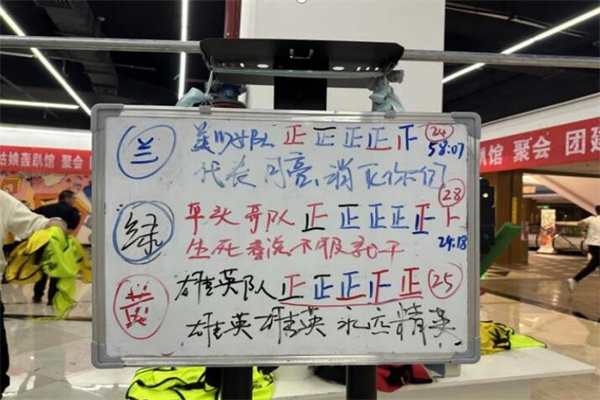 姑娘轰趴馆 聚会
趴馆 聚会 团建
兰 美少女队 正正正正 24
58:07
代表月亮、消灭你们
绿 平头哥队 正正正正正下 28
24:18
生死看淡不服就干
黄 雄英队 正正正正正 25
雄英雄英 永远精英